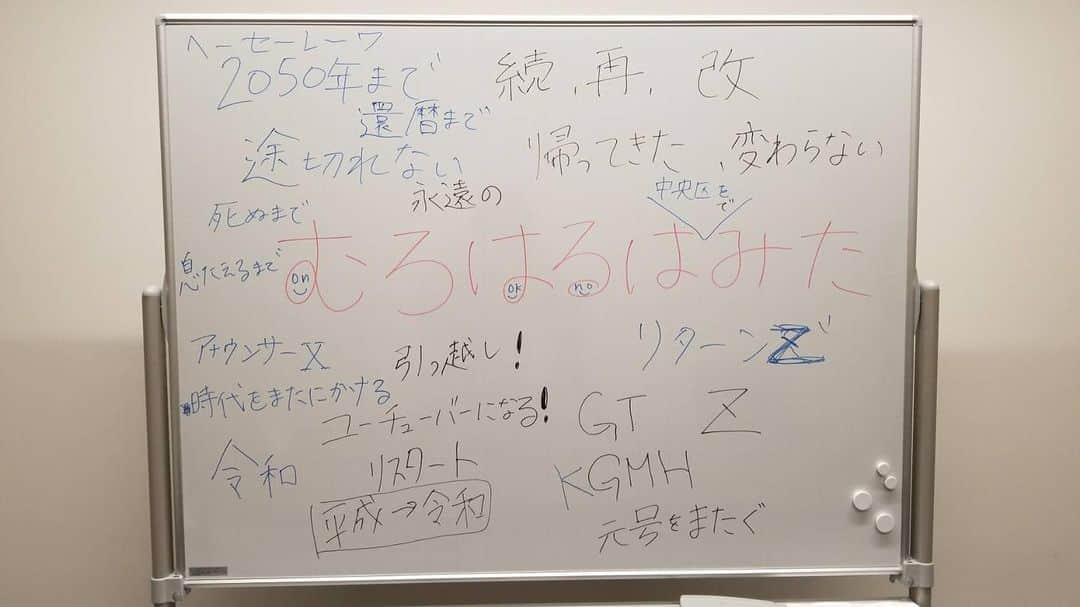 ヘーセーレーワ
2050年まで
続、再、改
還暦まで
途切れない
帰ってきた、変わらない
永遠の
中央区を
で
死ぬまで
むろはるはみた
息たえるまで
on
OK
no
アナウンサーX
引っ越し!
リターンズ
時代をまたにかける
ユーチューバーになる!
GT Z
令和
リスタート
KGMH
平成→令和
元号をまたぐ